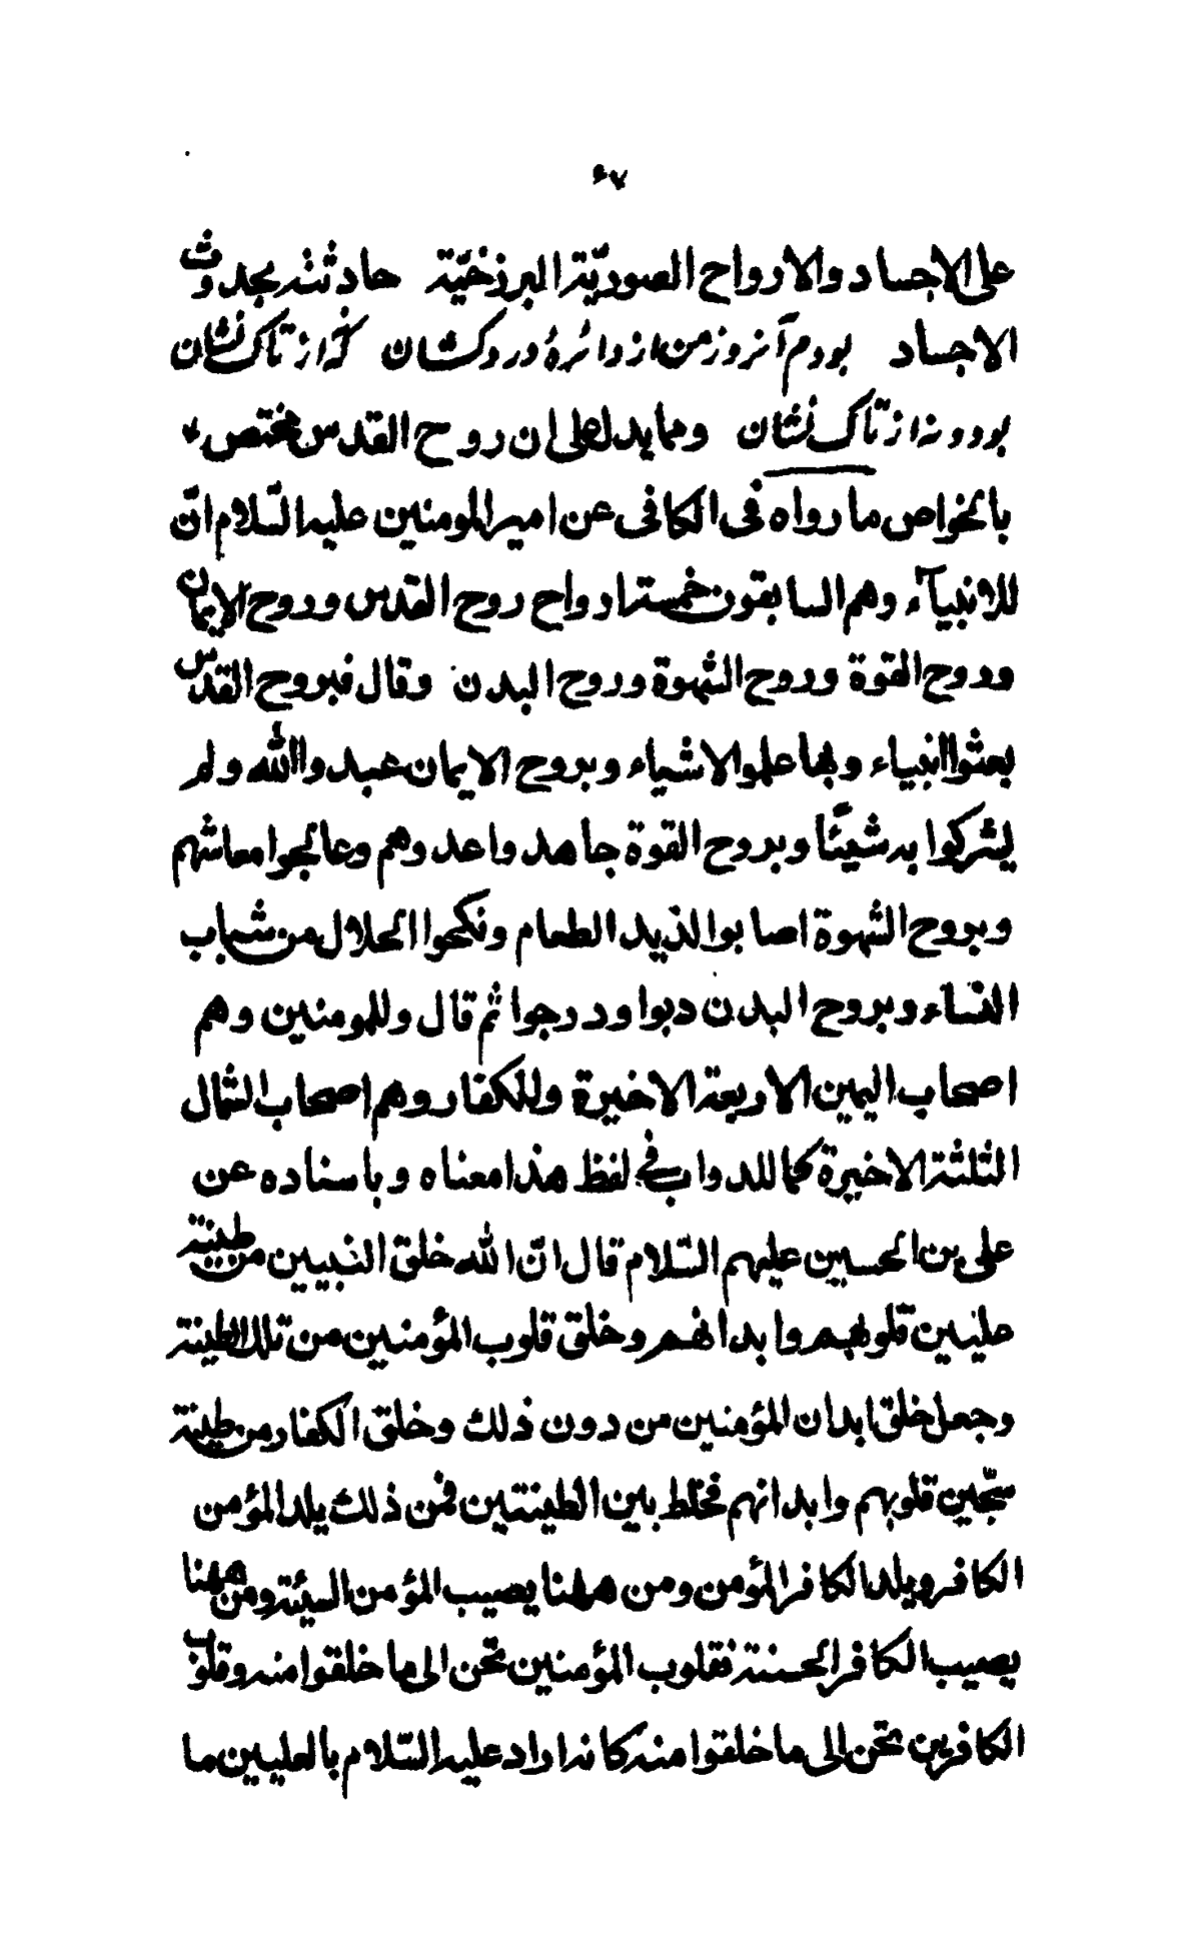 ۶۷
على الاجساد والارواح الصوريّة البرزخيّة حادثة بحدوث
الاجساد بودم آنروز من از دائرهٔ دردكشان كه از تاك نشان
بود و نه از تاك نشان ومما يدل على ان روح القدس مختص
بالخواص ما رواه فى الكافى عن امير المومنين عليه السّلام انّ
للانبيآء وهم السابقون خمسة ارواح روح القدس وروح الايمان
وروح القوة وروح الشهوة وروح البدن وقال فبروح القدس
بعثوا انبياء وبها علموا الاشياء وبروح الايمان عبدوا الله ولم
يشركوا به شيئًا وبروح القوة جاهدوا عدوهم وعالجوا معاشهم
وبروح الشهوة اصابوا لذيد الطعام ونكحوا الحلال من شباب
النساء وبروح البدن دبوا ودرجوا ثم قال وللمومنين وهم
اصحاب اليمين الاربعة الاخيرة وللكفار وهم اصحاب الشمال
الثلثة الاخيرة كما للدواب فى لفظ هذا معناه وباسناده عن
على بن الحسين عليهم السّلام قال انّ الله خلق النبيين من طينة
عليين قلوبهم وابدانهم وخلق قلوب المؤمنين من تلك الطينة
وجعل خلق ابدان المؤمنين من دون ذلك وخلق الكفار من طينة
سجّين قلوبهم وابدانهم فخلط بين الطينتين فمن ذلك يلد المؤمن
الكافر ويلد الكافر المؤمن ومن ههنا يصيب المؤمن السيئة ومن ههنا
يصيب الكافر الحسنة فقلوب المؤمنين تحن الى ما خلقوا منه وقلوب
الكافرين تحن الى ما خلقوا منه كانه اراد عليه السّلام بالعليين ما